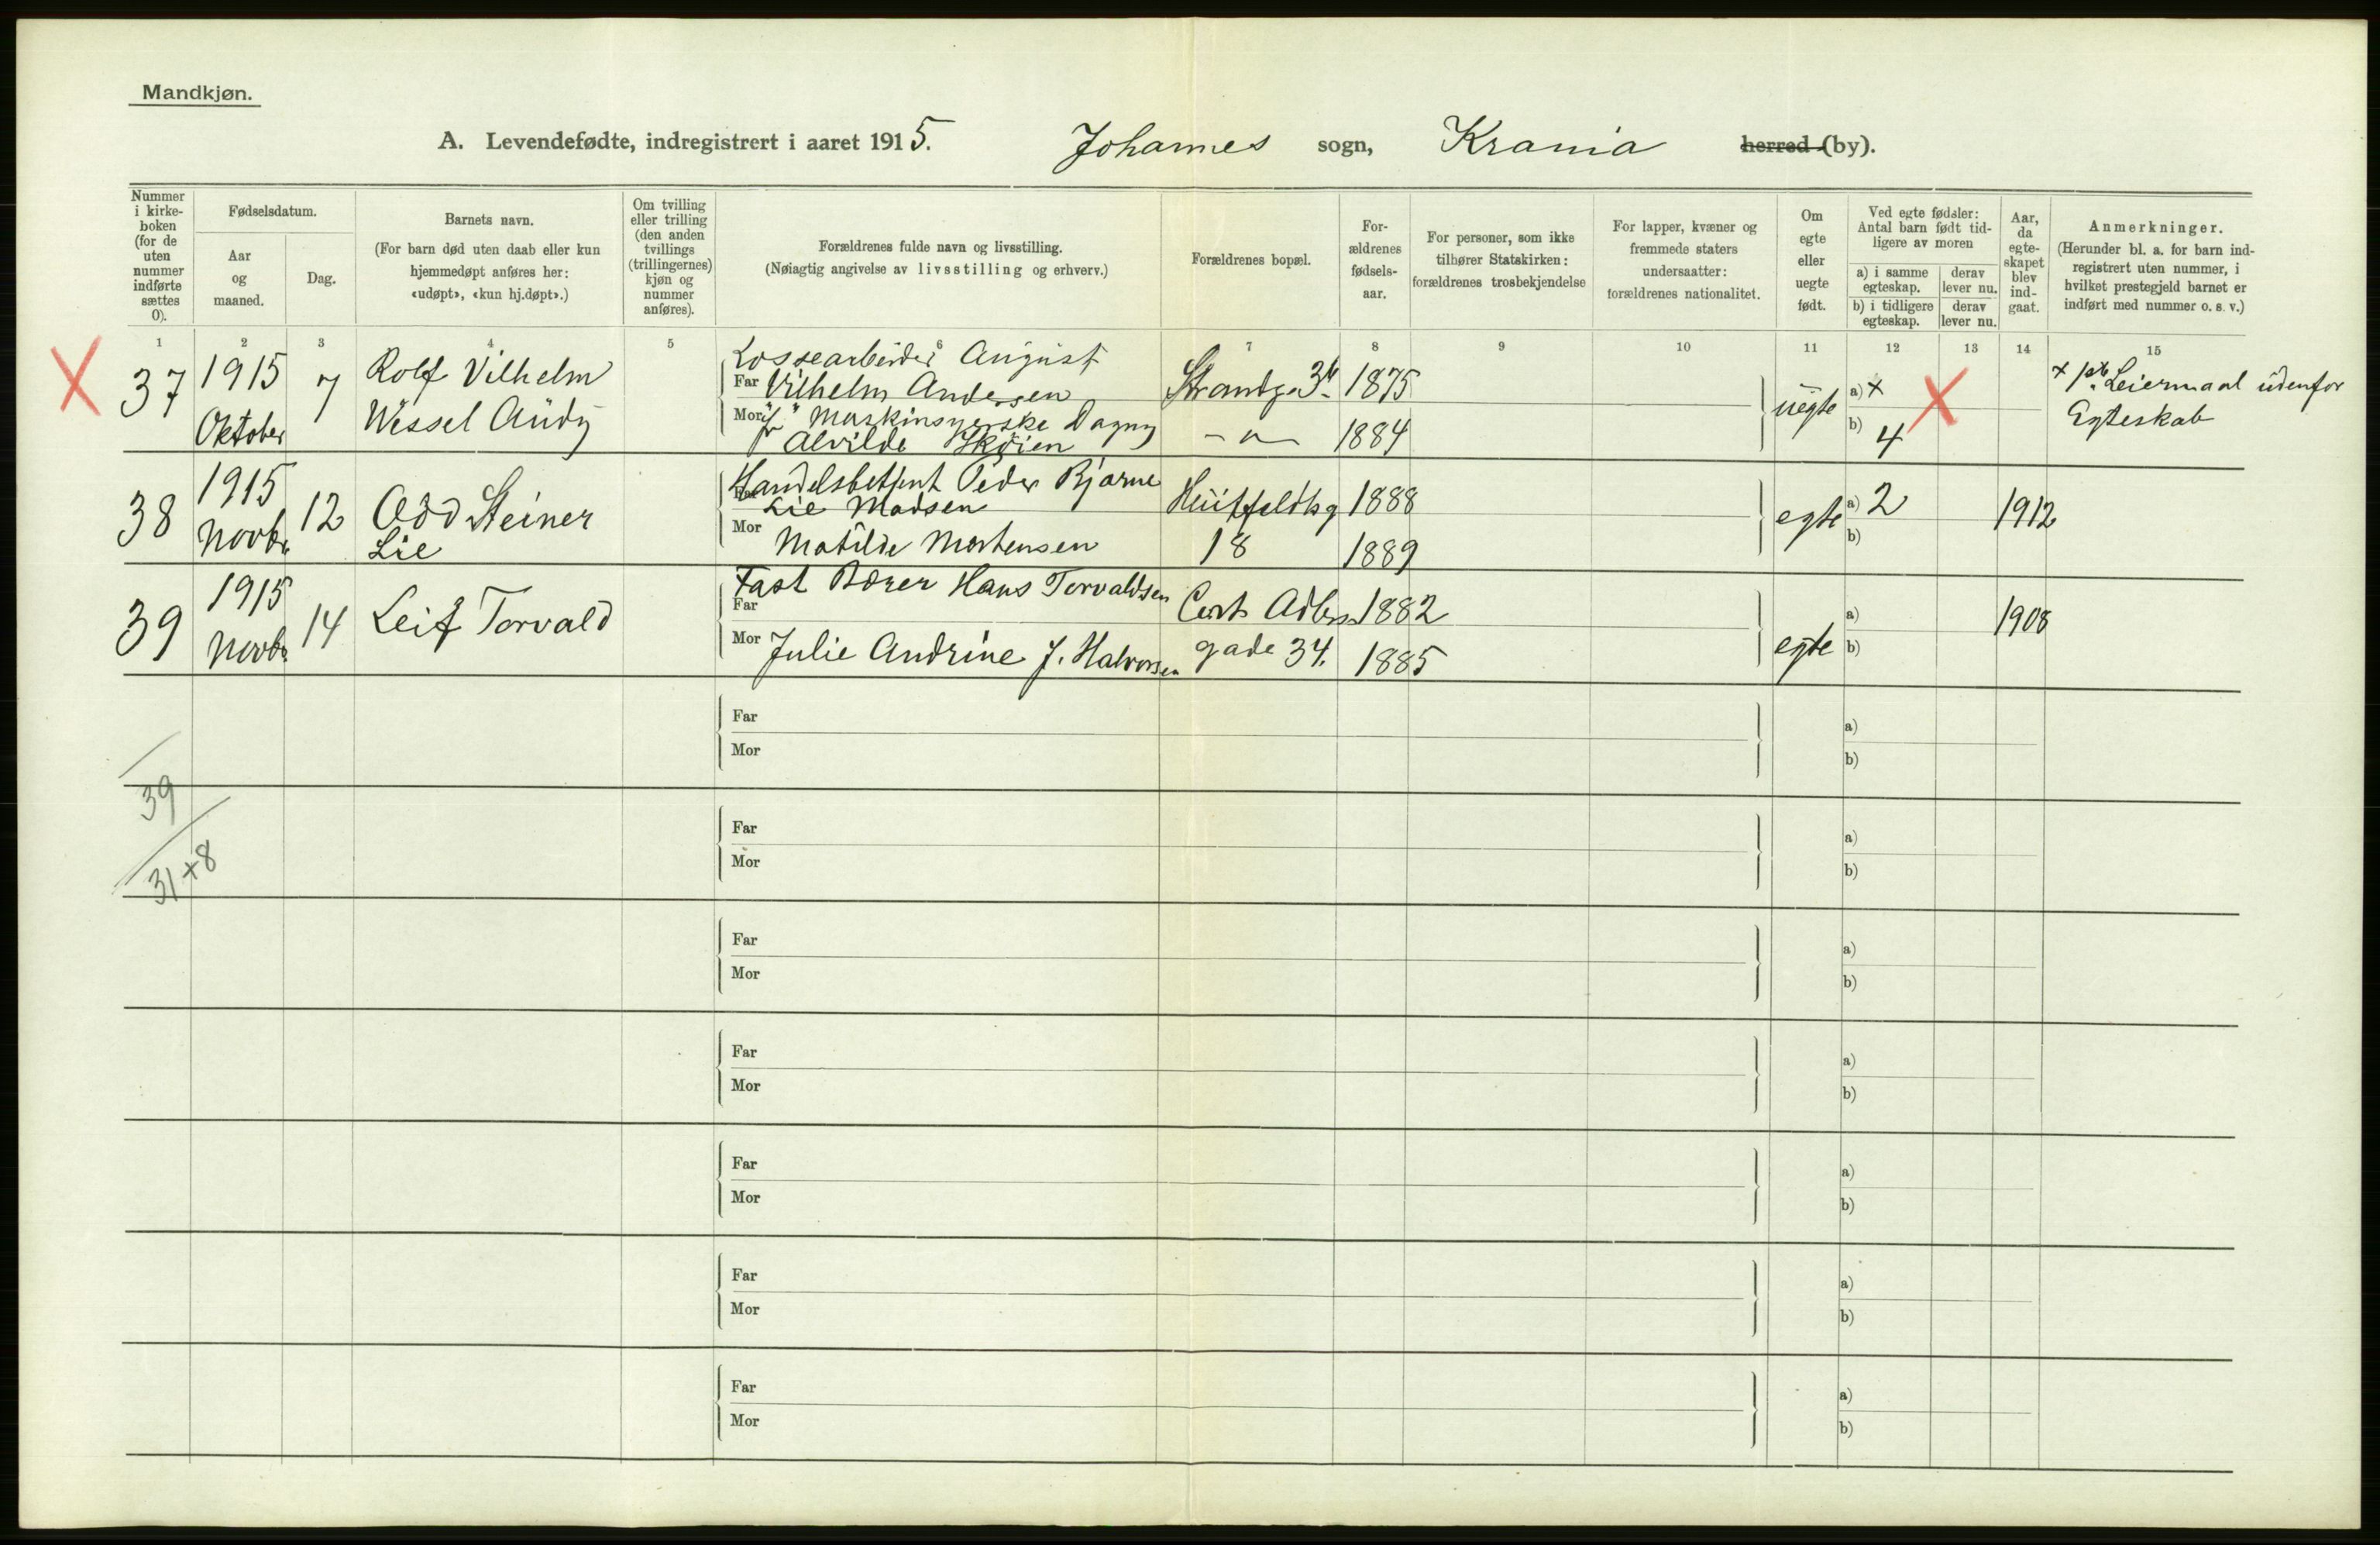 Mandkjøn.
A. Levendefødte, indregistrert i aaret 1915. Johannes sogn, Krania herred (by).
Nummer i kirke-boken (for de uten nummer indførte sættes 0).
Fødselsdatum.
Aar og maaned.
Dag.
Barnets navn.
(For barn død uten daab eller kun hjemmedøpt anføres her: «udøpt», «kun hj.døpt».)
Om tvilling eller trilling (den anden tvillings (trillingernes) kjøn og nummer anføres).
Forældrenes fulde navn og livsstilling.
(Nøiagtig angivelse av livsstilling og erhverv.)
Forældrenes bopæl.
For-ældrenes fødsels-aar.
For personer, som ikke tilhører Statskirken: forældrenes trosbekjendelse
For lapper, kvæner og fremmede staters undersaatter: forældrenes nationalitet.
Om egte eller uegte født.
Ved egte fødsler: Antal barn født tid-ligere av moren
a) i samme egteskap.
derav lever nu.
b) i tidligere egteskap.
derav lever nu.
Aar, da egte-skapet blev ind-gaat.
Anmerkninger.
(Herunder bl. a. for barn ind-registrert uten nummer, i hvilket prestegjeld barnet er indført med nummer o. s. v.)
1 2 3 4 5 6 7 8 9 10 11 12 13 14 15
X 37 1915 Oktober 7 Rolf Vilhelm
Wessel Audy
Lossearbeider August
Far Vilhelm Andersen Strandg. 1875
Mor Maskinsyerske Dagny
Alvilde Skøien – " – 1884
uegte a) x b) 4 X
x Leiermaal udenfor
Egteskab
38 1915 Novbr 12 Odd Steiner
Lie
Handelsbetjent Peder Bjarne
Far Lie Madsen Huitfeldtsg 1888
Mor Matilde Mortensen 18 1889
egte a) 2 b) 1912
39 1915 Novbr 14 Leif Torvald
Fast Bærer Hans Torvaldsen
Far Cort Adlers 1882
Mor Julie Andrine J. Halvorsen gade 34. 1885
egte a) b) 1908
Far a)
Mor b)
39
31+8
Far a)
Mor b)
Far a)
Mor b)
Far a)
Mor b)
Far a)
Mor b)
Far a)
Mor b)
Far a)
Mor b)